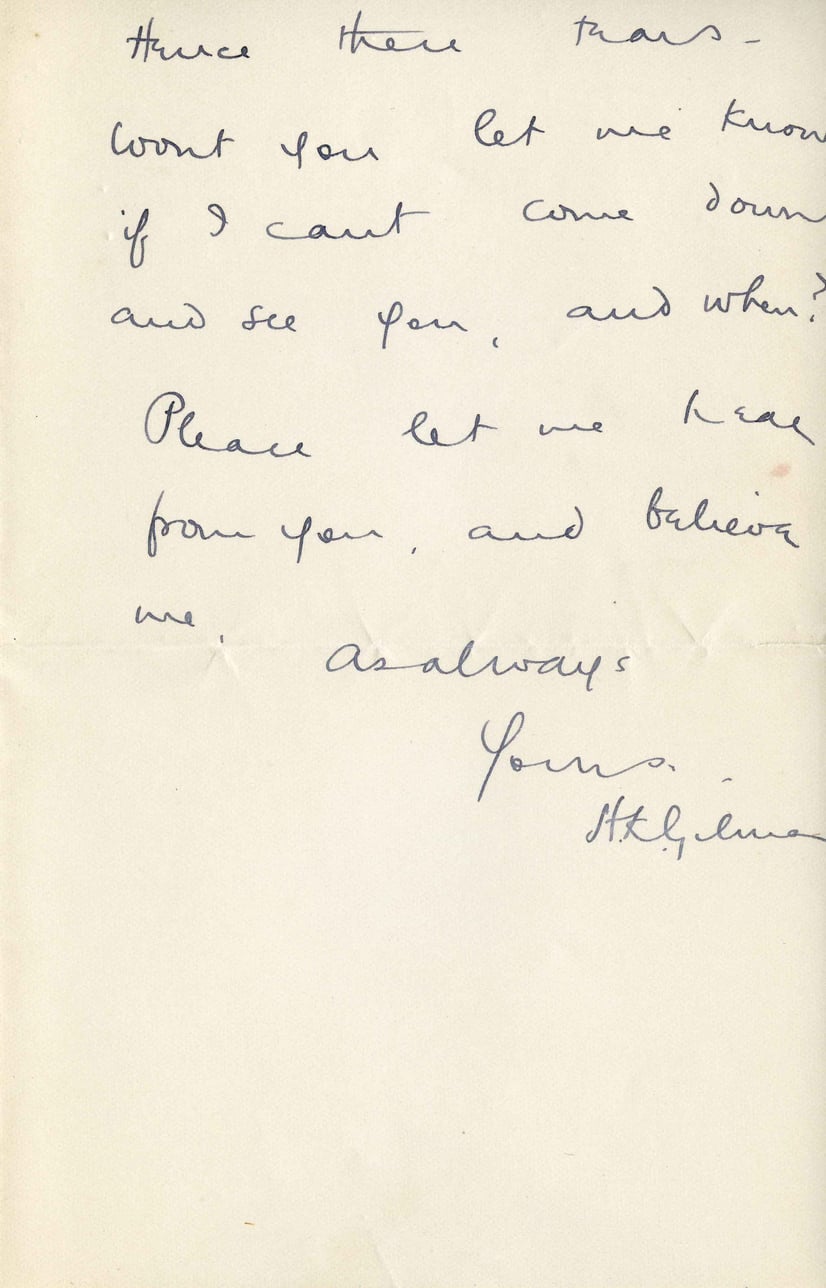 Hence these tears -
Wont you let me know
if I cant come down
and see you, and when?
Please let me hear
from you, and believe
me,
As always
Yours.